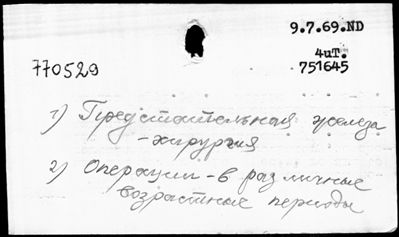 9.7.69.ND
4иТ.
751645
770529
1) Предстательная железа
-хирургия
2) Операции - в различные
возрастные периоды